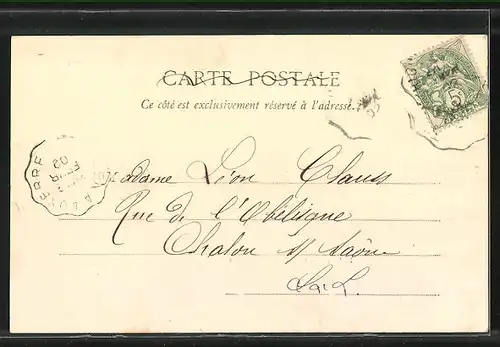 CARTE POSTALE
Ce côté est exclusivement réservé à l'adresse.
5
Madame Léon Clauss
Rue de l'Obélisque
Chalon s/ Saône
S. & L.
FEVR
02